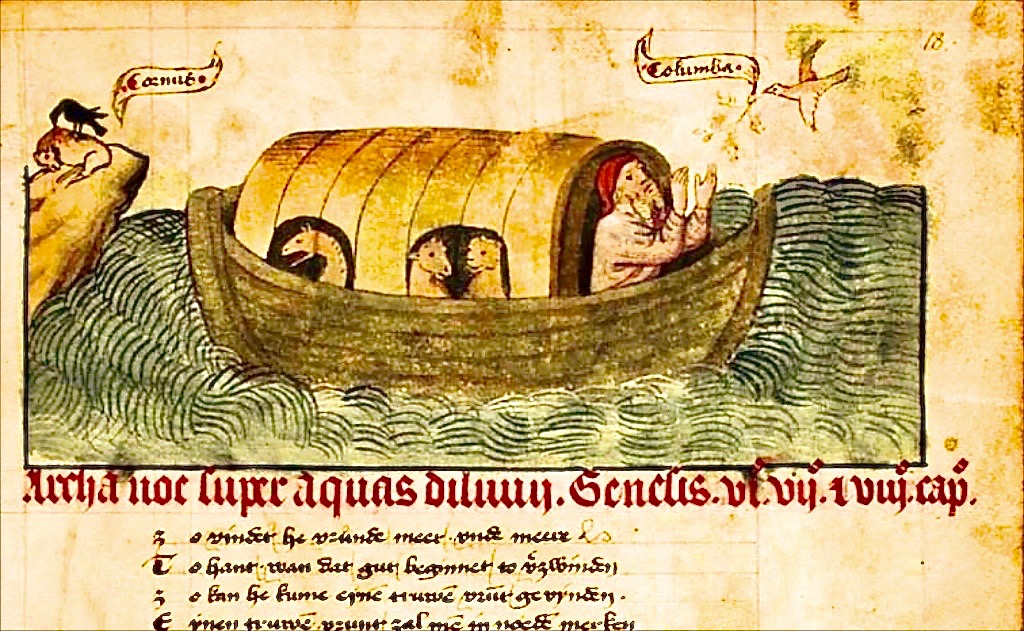 18.
Coruus.
Columba.
Archa noe super aquas diluuij. Genesis. vi°. vij°. ⁊ viij°. cap°.
zo vindet he vrunde meer vnde meer
To hant wan dat gut beginnet to v̄zwinden
zo kan he kume eynē truwē vrūt gevynden.
Eynen truwē vrunt zal mē in noedē merken